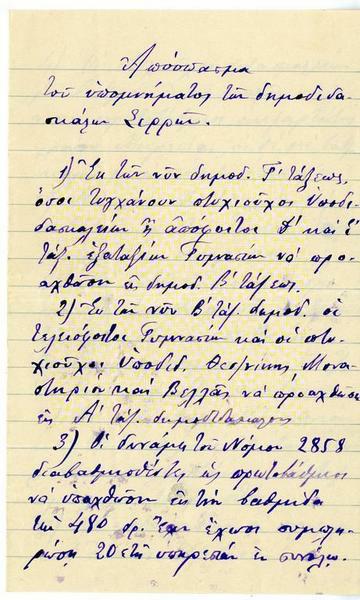 Απόσπασμα
του υπομνήματος των δημοδιδα-
σκάλων Σερρών.
1) Εκ των νυν δημοδ. Γ' τάξεως,
όσοι τυγχάνουν πτυχιούχοι Υποδι-
δασκαλείων ή απόφοιτοι Δ' και Ε'
τάξ. εξαταξίων Γυμνασίων να προ-
αχθώσιν εις δημοδ. Β' τάξεως.
2) Εκ των νυν Β' τάξ. δημοδ. οι
τελειόφοιτοι Γυμνασίων και οι πτυ-
χιούχοι Υποδιδ. Θεσ/νίκης Μονα-
στηρίου και Βελλάς να προαχθώσιν
εις Α' τάξ. δημοδιδασκάλους
3) Οι δυνάμει του Νόμου 2858
διαβαθμισθέντες ως πρωτοβάθμιοι
να υπαχθώσιν εις την βαθμίδα
των 480 δρ. Εάν έχωσι συμπλη-
ρώσει 20ετή υπηρεσίαν εν συνόλω.